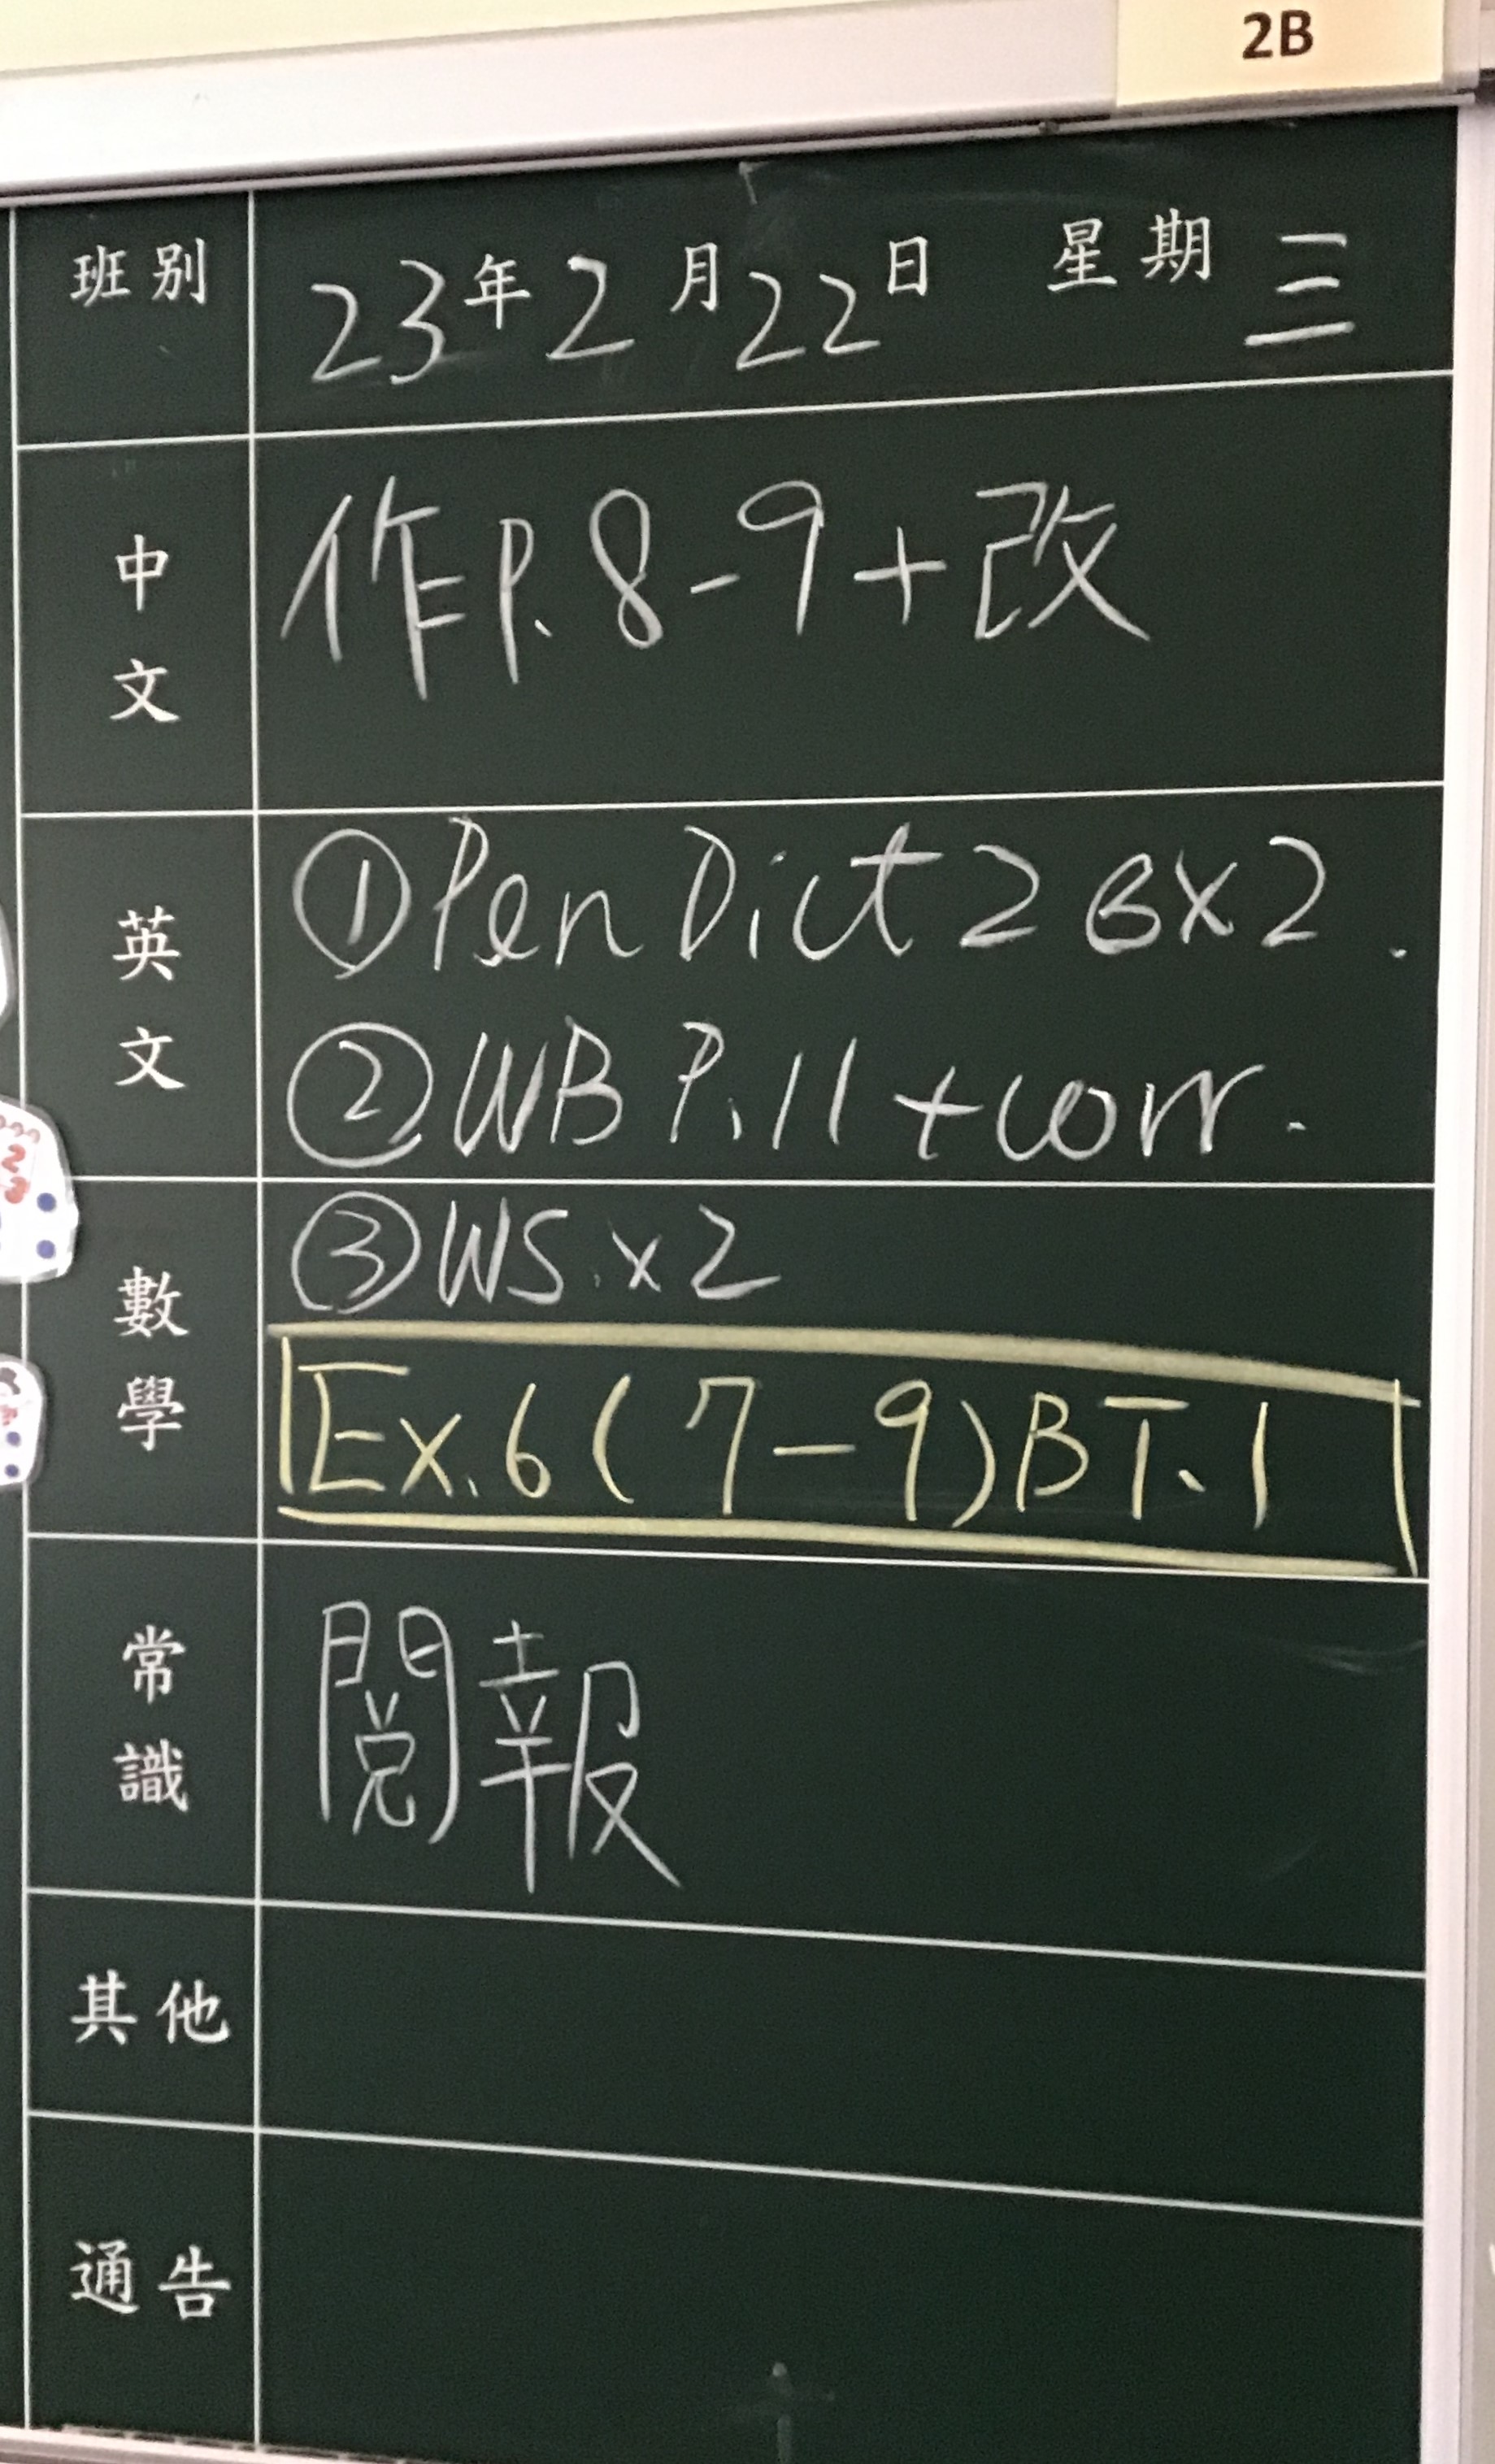 2B
班別 23年2月22日 星期三
中文 作P.8-9+改
英文 ①Pen Dict 2 B×2.
②WB P.11 +corr.
③WS.×2
數學 Ex.6(7-9)BT.1
常識 閱報
其他
通告